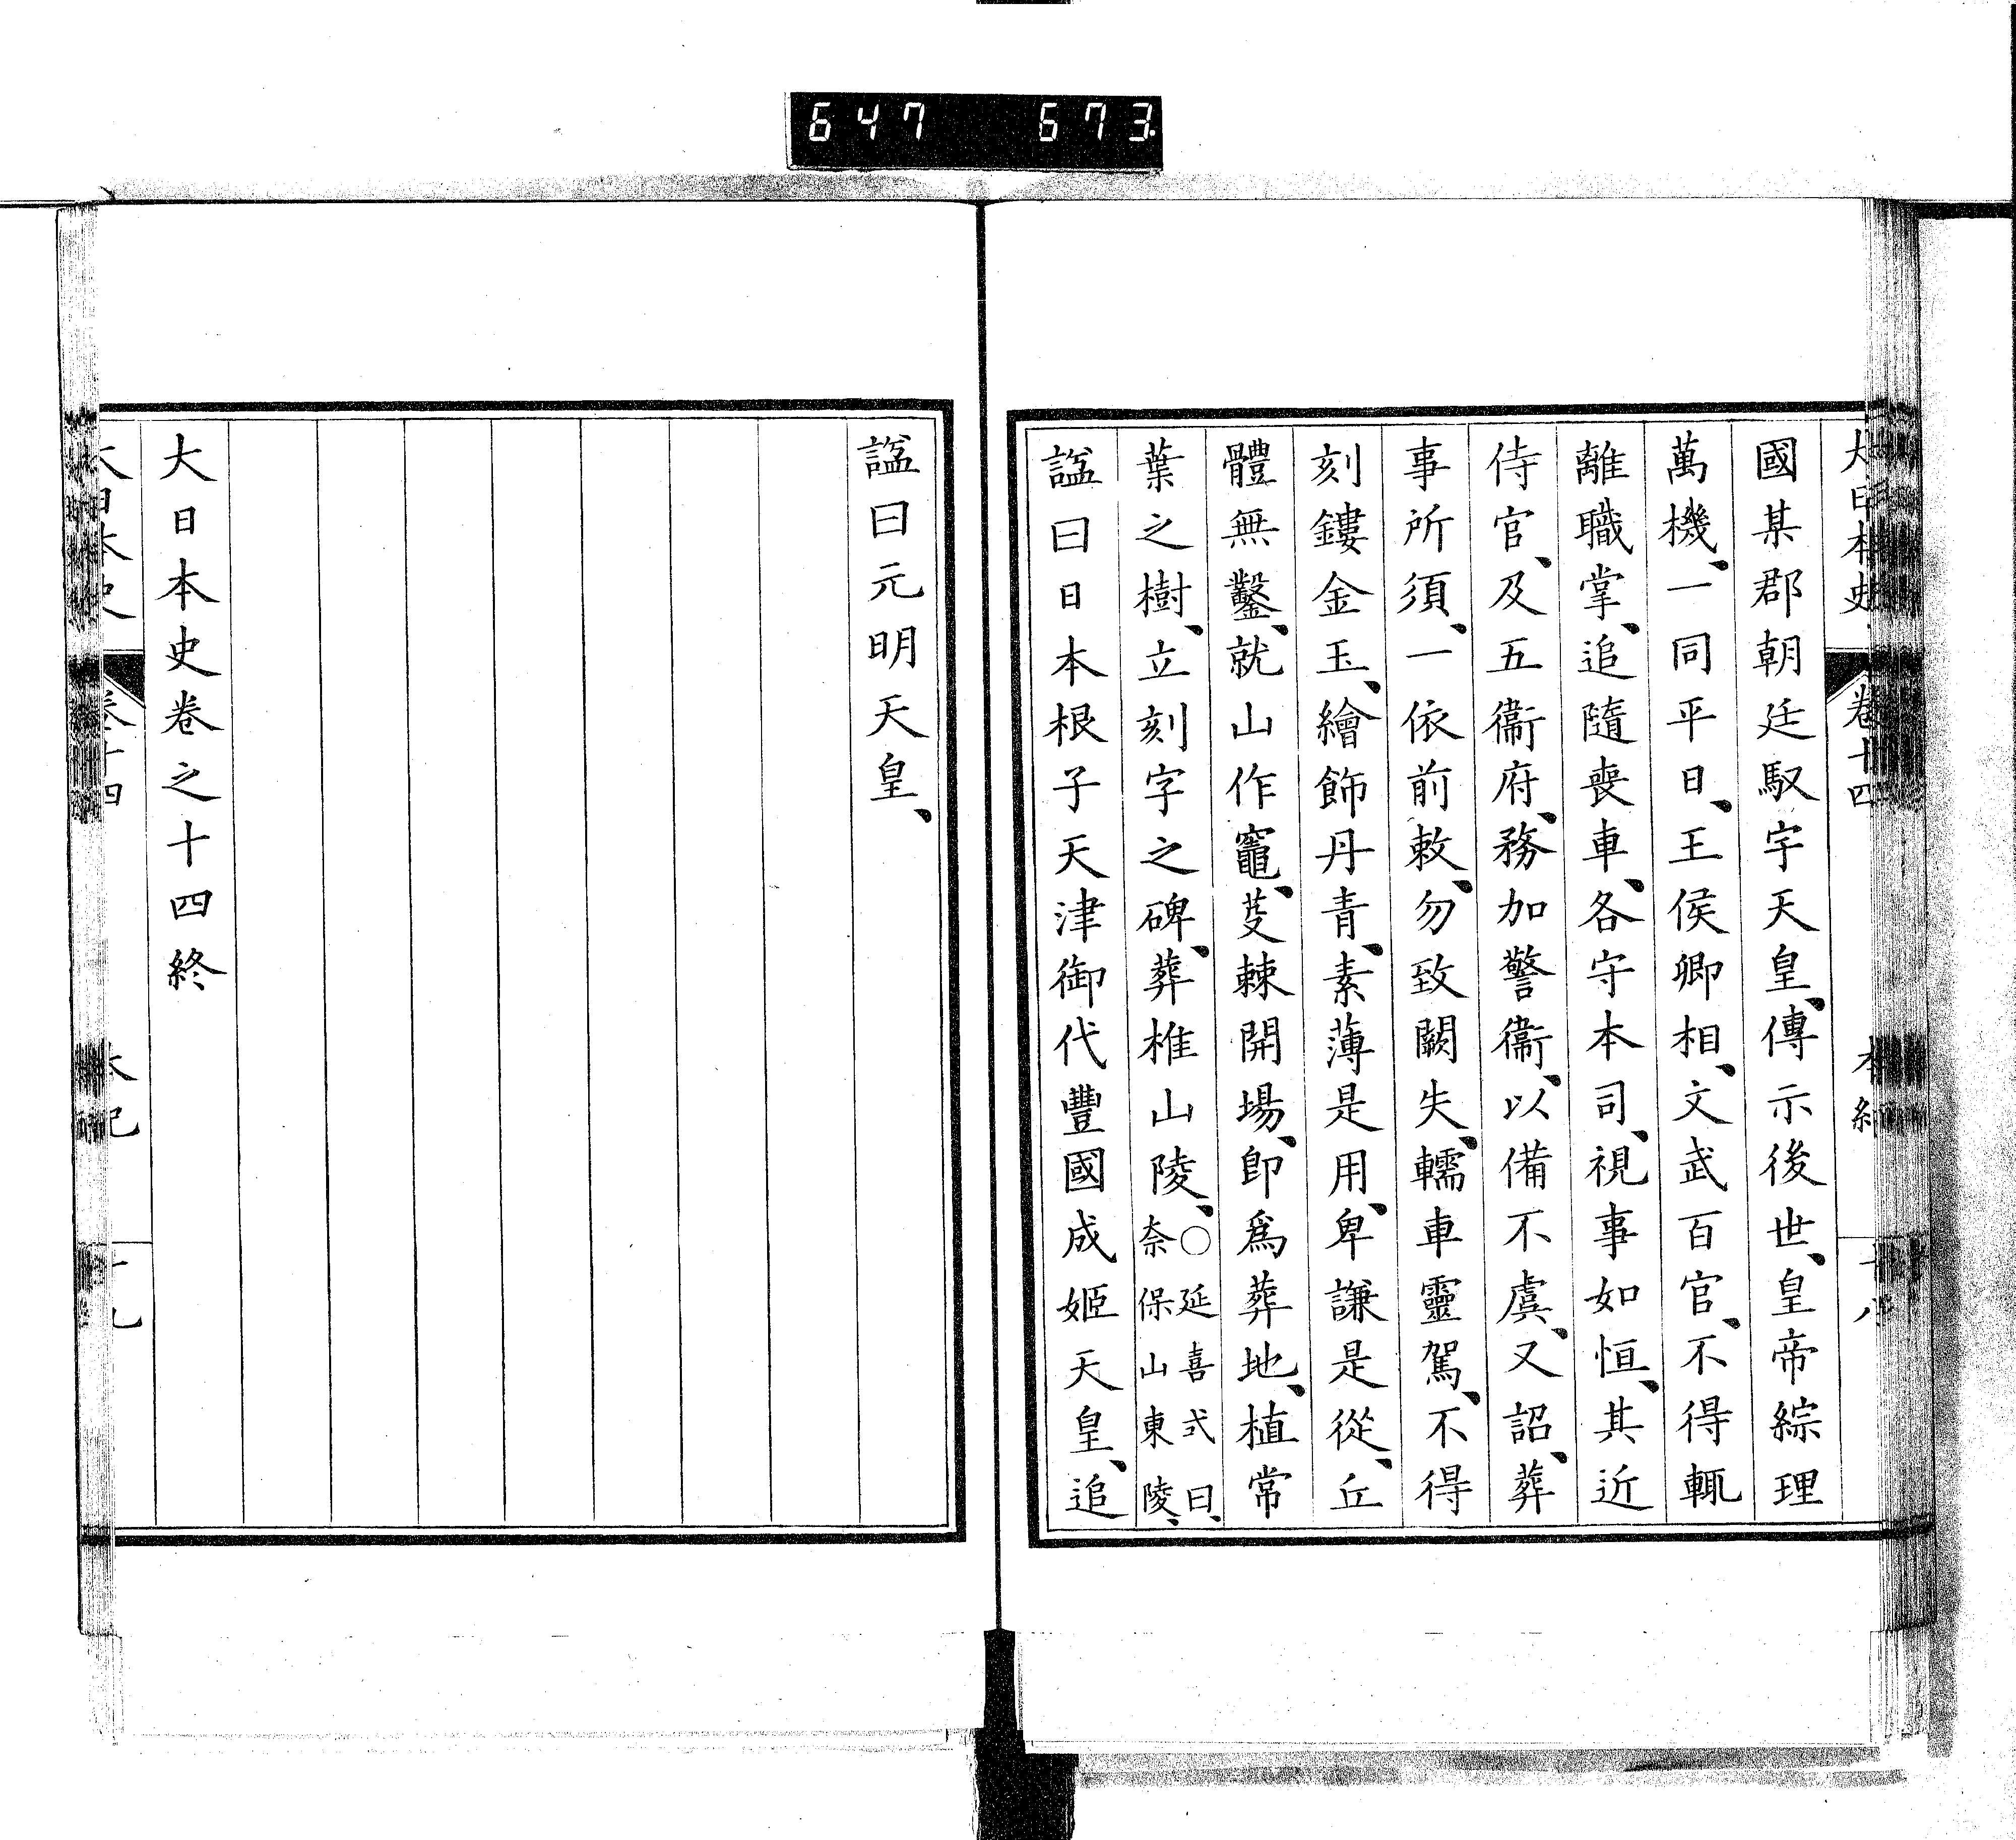 647 673
大日本史 卷十四 本紀 十八
國某郡朝廷馭宇天皇、傳示後世、皇帝綜理
萬機、一同平日、王侯卿相、文武百官、不得輒
離職掌、追隨喪車、各守本司、視事如恒、其近
侍官、及五衞府、務加警衞、以備不虞、又詔、葬
事所須、一依前敕、勿致闕失、轜車靈駕、不得
刻鏤金玉、繪飾丹青、素薄是用、卑謙是從、丘
體無鑿、就山作竈、芟棘開場、即爲葬地、植常
葉之樹、立刻字之碑、葬椎山陵、○延喜式曰、奈保山東陵、
諡曰日本根子天津御代豐國成姬天皇、追
諡曰元明天皇、
大日本史卷之十四終
大日本史 卷十四 本紀 十九